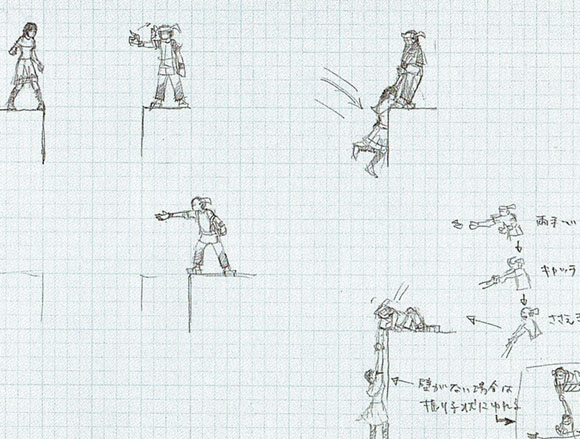 両手で
キャッチ
ささえる
壁がない場合は
振り子状にゆれる